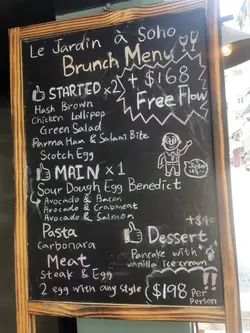 Le Jardin à Soho
Brunch Menu
+ $168
Free Flow
STARTED x2
Hash Brown
Chicken Lollipop
Green Salad
Parma Ham & Salami Bite
Scotch Egg
MAIN x1
Sour Dough Egg Benedict
Avocado & Bacon
Avocado & Crabmeat
Avocado & Salmon
Pasta
Carbonara
Meat
Steak & Egg
2 egg with any style
+$40
Dessert
Pancake with
vanilla ice cream
$198 Per
Person